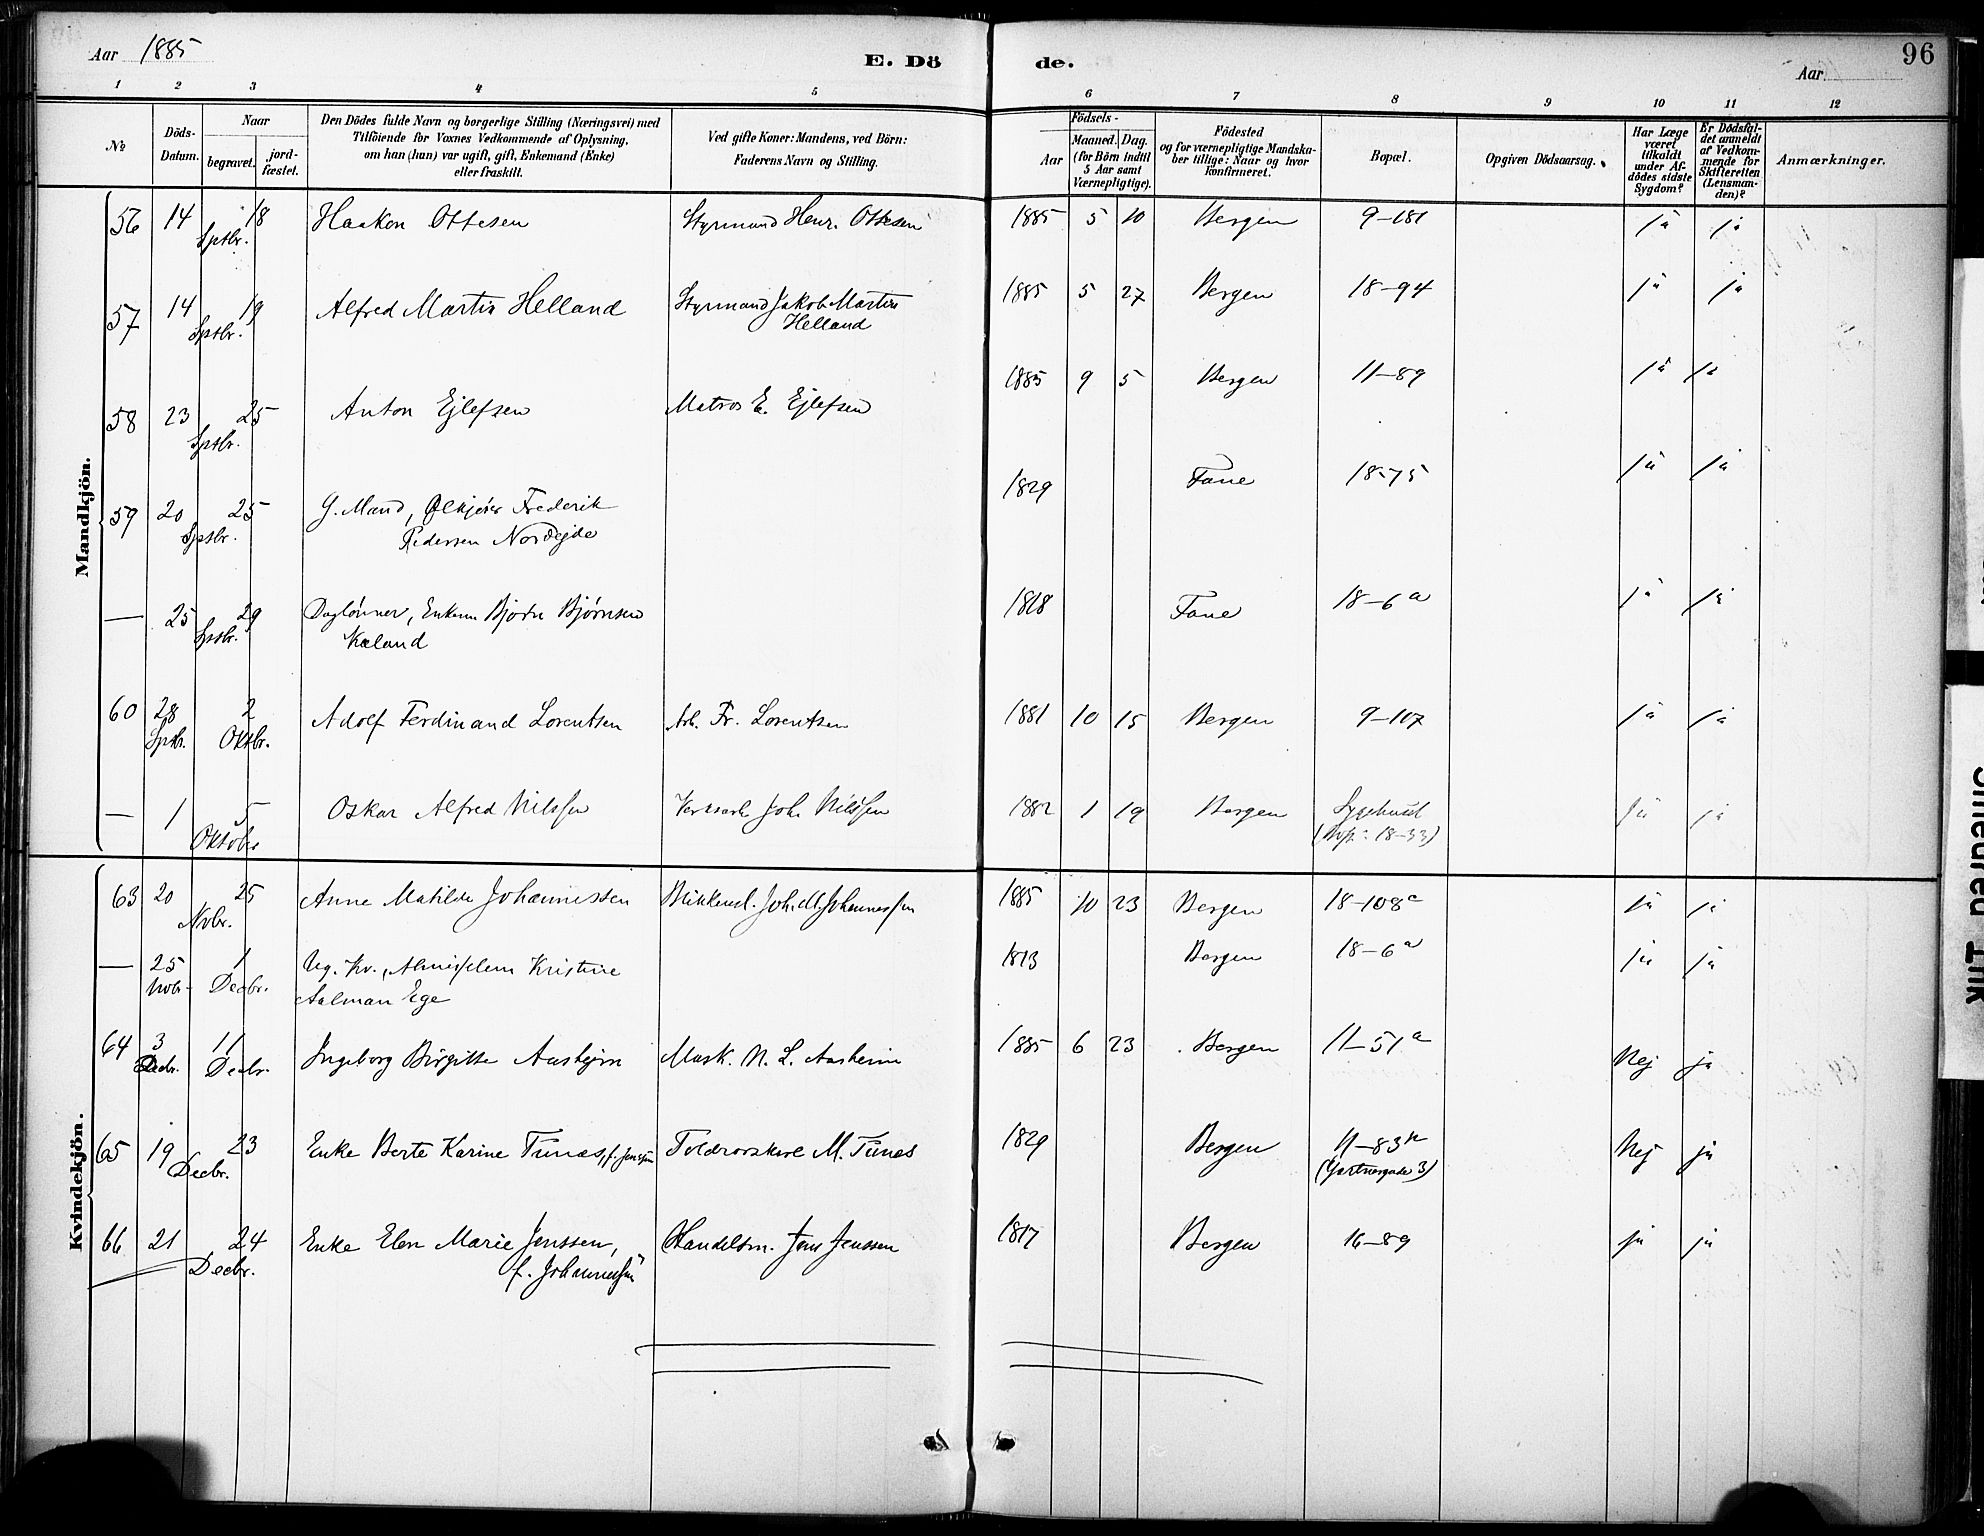 Aar 1885
E. Dö
de.
Aar
96
1 2 3 4 5 6 7 8 9 10 11 12
№
Döds-Datum.
Naar
begravet.
jord-fæstet.
Den Dödes fulde Navn og borgerlige Stilling (Næringsvei) med
Tilföiende for Voxnes Vedkommende af Oplysning,
om han (hun) var ugift, gift, Enkemand (Enke)
eller fraskilt.
Ved gifte Koner: Mandens, ved Börn:
Faderens Navn og Stilling.
Födsels-
Aar
Maaned. Dag.
(for Börn indtil
5 Aar samt
Værnepligtige).
Födested
og for værnepligtige Mandska-
ber tillige: Naar og hvor
konfirmeret.
Bopæl.
Opgiven Dödsaarsag.
Har Læge
været
tilkaldt
under Af-
dödes sidste
Sygdom?
Er Dödsfal-
det anmeldt
af Vedkom-
mende for
Skifteretten
(Lensman-
den)?
Anmærkninger.
Mandkjön.
56 14 18 Haakon Ottesen Styrmand Henr. Ottesen 1885 5 10 Bergen 9-181 ja ja
Sptbr.
57 14 19 Alfred Martin Helland Styrmand Jakob Martin 1885 5 27 Bergen 18-94 ja ja
Sptbr. Helland
58 23 25 Anton Ejlefsen Matros E. Ejlefsen 1885 9 5 Bergen 11-89 ja ja
Sptbr.
59 20 25 G. Mand, Ølkjører Frederik 1829 Fane 18-75 ja ja
Sptbr. Pedersen Nordejde
— 25 29 Daglønner, Enkem Bjørn Bjørnsen 1818 Fane 18-6a ja ja
Sptbr. Kaland
60 28 2 Adolf Ferdinand Lorentsen Arb. Fr. Lorentsen 1881 10 15 Bergen 9-107 ja ja
Sptbr. Oktbr.
— 1 5 Oskar Alfred Nilssen Joh. Nilssen 1882 1 19 Bergen Sygehuset ja ja
Oktober 18-33)
Kvindekjön.
63 20 25 Anne Matilde Johannessen Joh. M. Johannessen 1885 10 23 Bergen 18-108c ja ja
Nvbr.
— 25 1 Ug. Kv., Kristine 1813 Bergen 18-6a ja ja
Nvbr. Decbr. Aalman Ege
64 3 11 Ingeborg Birgitte Aasheim Mask. N. L. Aasheim 1885 6 23 Bergen 11-51a Nej ja
Decbr. Decbr.
65 19 23 Enke Berte Karine Tünæs, f. Jensen Toldrorskarl M. Tünæs 1829 Bergen 11-83 Nej ja
Decbr. (Gartnergade 3)
66 21 24 Enke Elen Marie Jenssen, Handelsm. Jens Jenssen 1817 Bergen 16-89 ja ja
Decbr. f. Johannessen